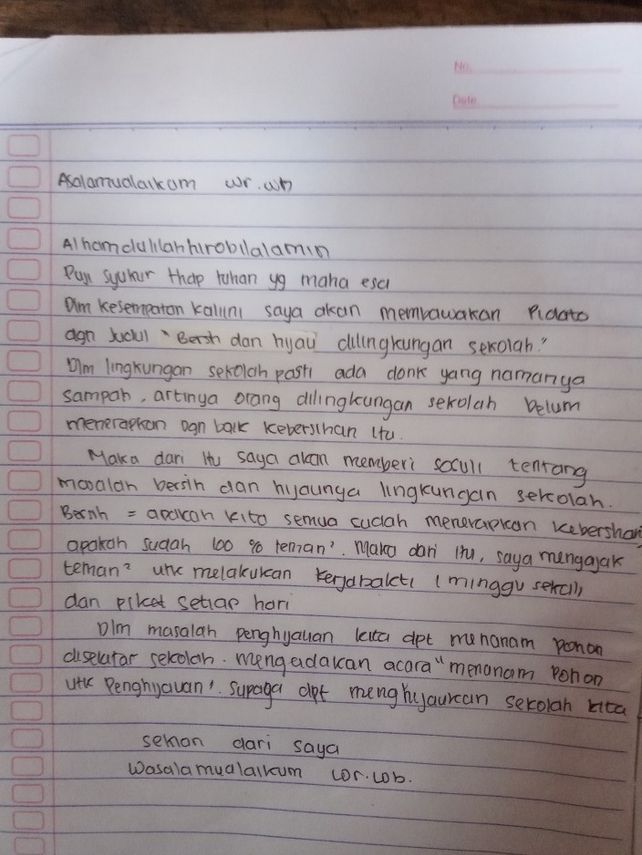 No.
Date
Asalamualaikom wr.wb
Alhamdulilahhirobilalamin
Puji syukur thap tuhan yg maha esa
Dlm kesempatan kaliini saya akan membawakan Pidato
dgn Judul "Bersih dan hijau dilingkungan sekolah."
Dlm lingkungan sekolah pasti ada donk yang namanya
sampah, artinya orang dilingkungan sekolah belum
menerapkan dgn baik kebersihan itu.
Maka dari itu saya akan memberi tentang
masalah bersih dan hijaunya lingkungan sekolah.
Bersih = apakah kita semua sudah menerapkan kebersihan
apakah sudah 100 % teman². Maka dari itu, saya mengajak
teman² utk melakukan kerjabakti (minggu sekali)
dan piket setiap hari
Dlm masalah penghijauan kita dpt menanam pohon
disekitar sekolah. mengadakan acara "menanam pohon
utk Penghijauan". supaya dpt menghijaukan sekolah kita
sekian dari saya
Wasalamualaikum wr.wb.